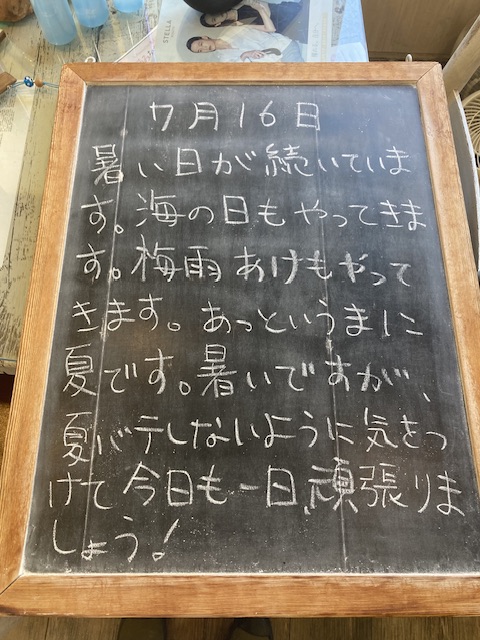 STELLA
7月16日
暑い日が続いていま
す。海の日もやってきま
す。梅雨あけもやって
きます。あっというまに
夏です。暑いですが、
夏バテしないように気をつ
けて今日も一日、頑張りま
しょう!